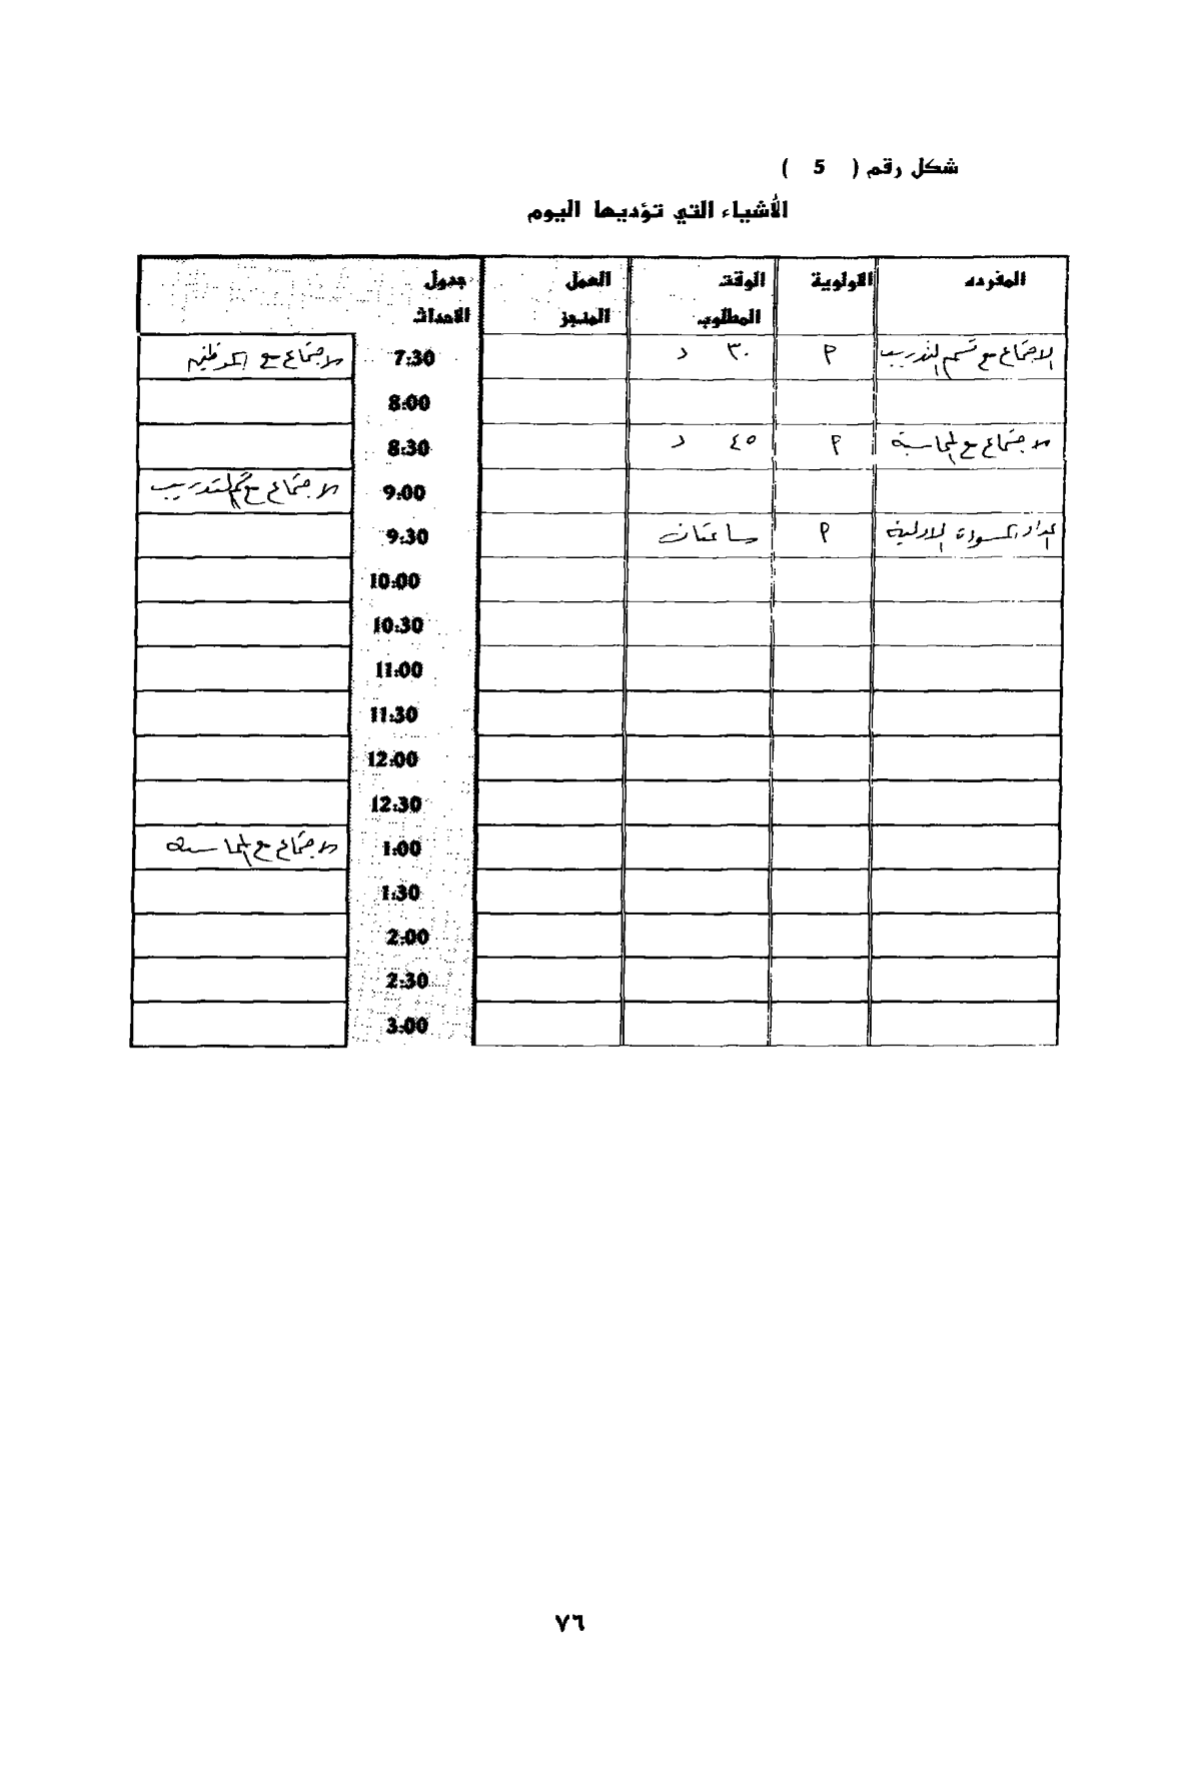 شكل رقم ( 5 )
الأشياء التي تؤديها اليوم
المفرده الاولوية الوقت المطلوب العمل المنجز جدول الاحداث
الاجتماع مع قسم التدريب م ٣٠ د 7:30 الاجتماع مع الموظفين
8:00
الاجتماع مع المحاسبة م ٤٥ د 8:30
9:00 الاجتماع مع قسم التدريب
اعداد المسودة الاولية م ساعتان 9:30
10:00
10:30
11:00
11:30
12:00
12:30
1:00 الاجتماع مع المحاسبة
1:30
2:00
2:30
3:00
٧٦